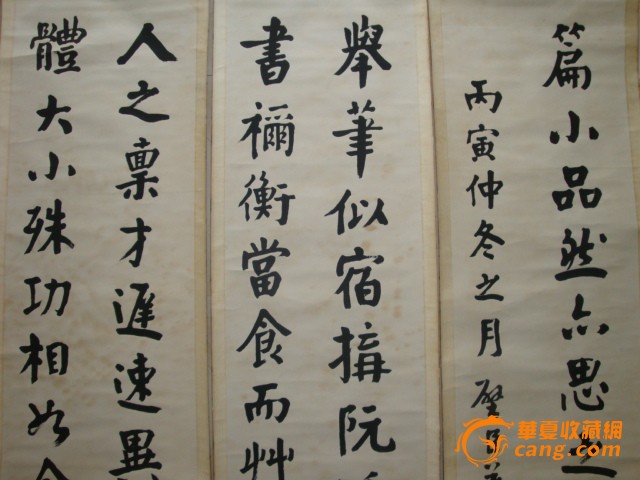 人之稟才遲速異
體大小殊功相如
擧茟似宿搆阮
書禰衡當食而艸
篇小品然亦思之
丙寅仲冬之月
華夏收藏網
cang.com